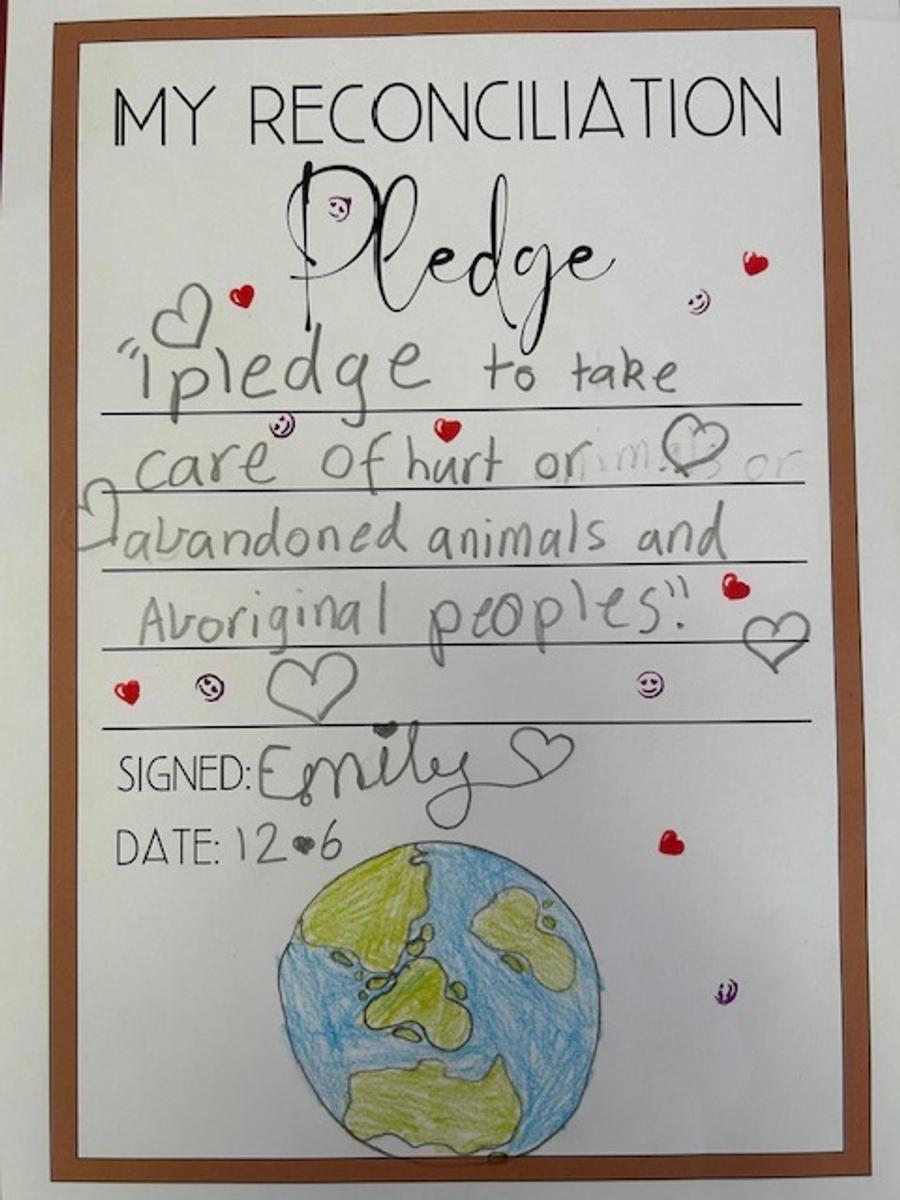 MY RECONCILIATION
Pledge
"I pledge to take
care of hurt or
abandoned animals and
Aboriginal peoples".
SIGNED: Emily
DATE: 12•6